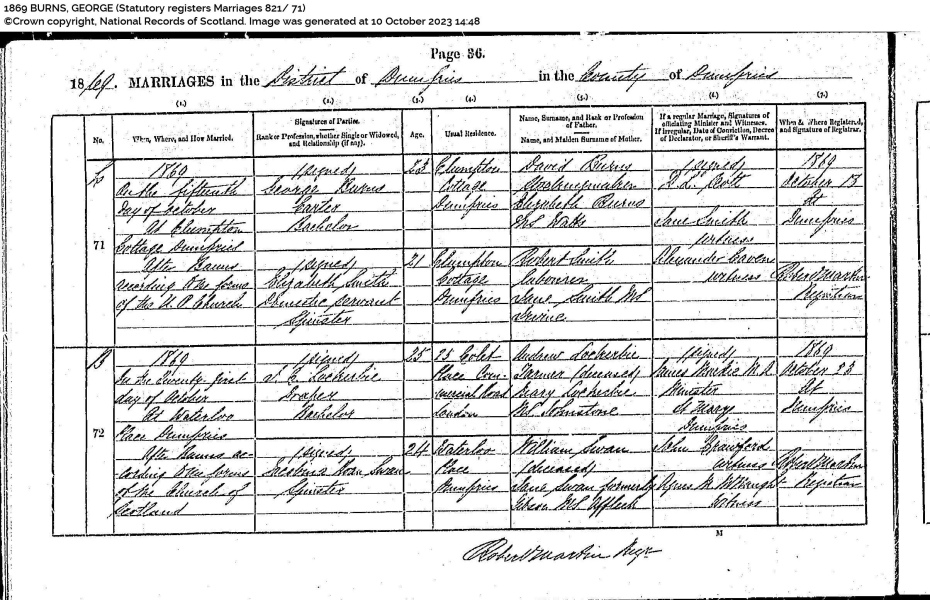 1869 BURNS, GEORGE (Statutory registers Marriages 821/ 71)
©Crown copyright, National Records of Scotland. Image was generated at 10 October 2023 14:48
Page 36.
1869. MARRIAGES in the District of Dumfries in the County of Dumfries
(1.) (2.) (3.) (4.) (5.) (6.) (7.)
No.
When, Where, and How Married.
Signatures of Parties.
Rank or Profession, whether Single or Widowed, and Relationship (if any).
Age.
Usual Residence.
Name, Surname, and Rank or Profession of Father.
Name, and Maiden Surname of Mother.
If a regular Marriage, Signatures of officiating Minister and Witnesses.
If Irregular, Date of Conviction, Decree of Declarator, or Sheriff's Warrant.
When & Where Registered, and Signature of Registrar.
71
1869
On the fifteenth
day of October
At Clumpton
Cottage Dumfries
After Banns
according to the forms
of the U. P. Church
(signed)
George Burns
Carter
Bachelor
(signed)
Elizabeth Smith
Domestic Servant
Spinster
23
21
Clumpton
Cottage
Dumfries
Clumpton
Cottage
Dumfries
David Burns
Elizabeth Burns
MS Watts
Robert Smith
Labourer
Jane Smith MS
Irvine
(signed)
D. L. Scott
Jane Smith
witness
Alexander Cavens
witness
1869
October 18
At
Dumfries
Robert Martin
Registrar
72
1869
On the Twenty-first
day of October
At Waterloo
Place Dumfries
After Banns ac-
cording to the forms
of the Church of
Scotland
(signed)
Lockerbie
Draper
Bachelor
(signed)
Swan
Spinster
25
24
25 Colet
Place Com-
mercial Road
London
Waterloo
Place
Dumfries
Andrew Lockerbie
Farmer (deceased)
Mary Lockerbie
William Swan
(deceased)
Jane Swan formerly
Gibson MS Affleck
(signed)
James Mackie M.A.
Minister
St Marys
Dumfries
John Crawford
witness
Agnes M. McNaught
Witness
1869
October 23
At
Dumfries
Robert Martin
Registrar
M
Robert Martin Regr